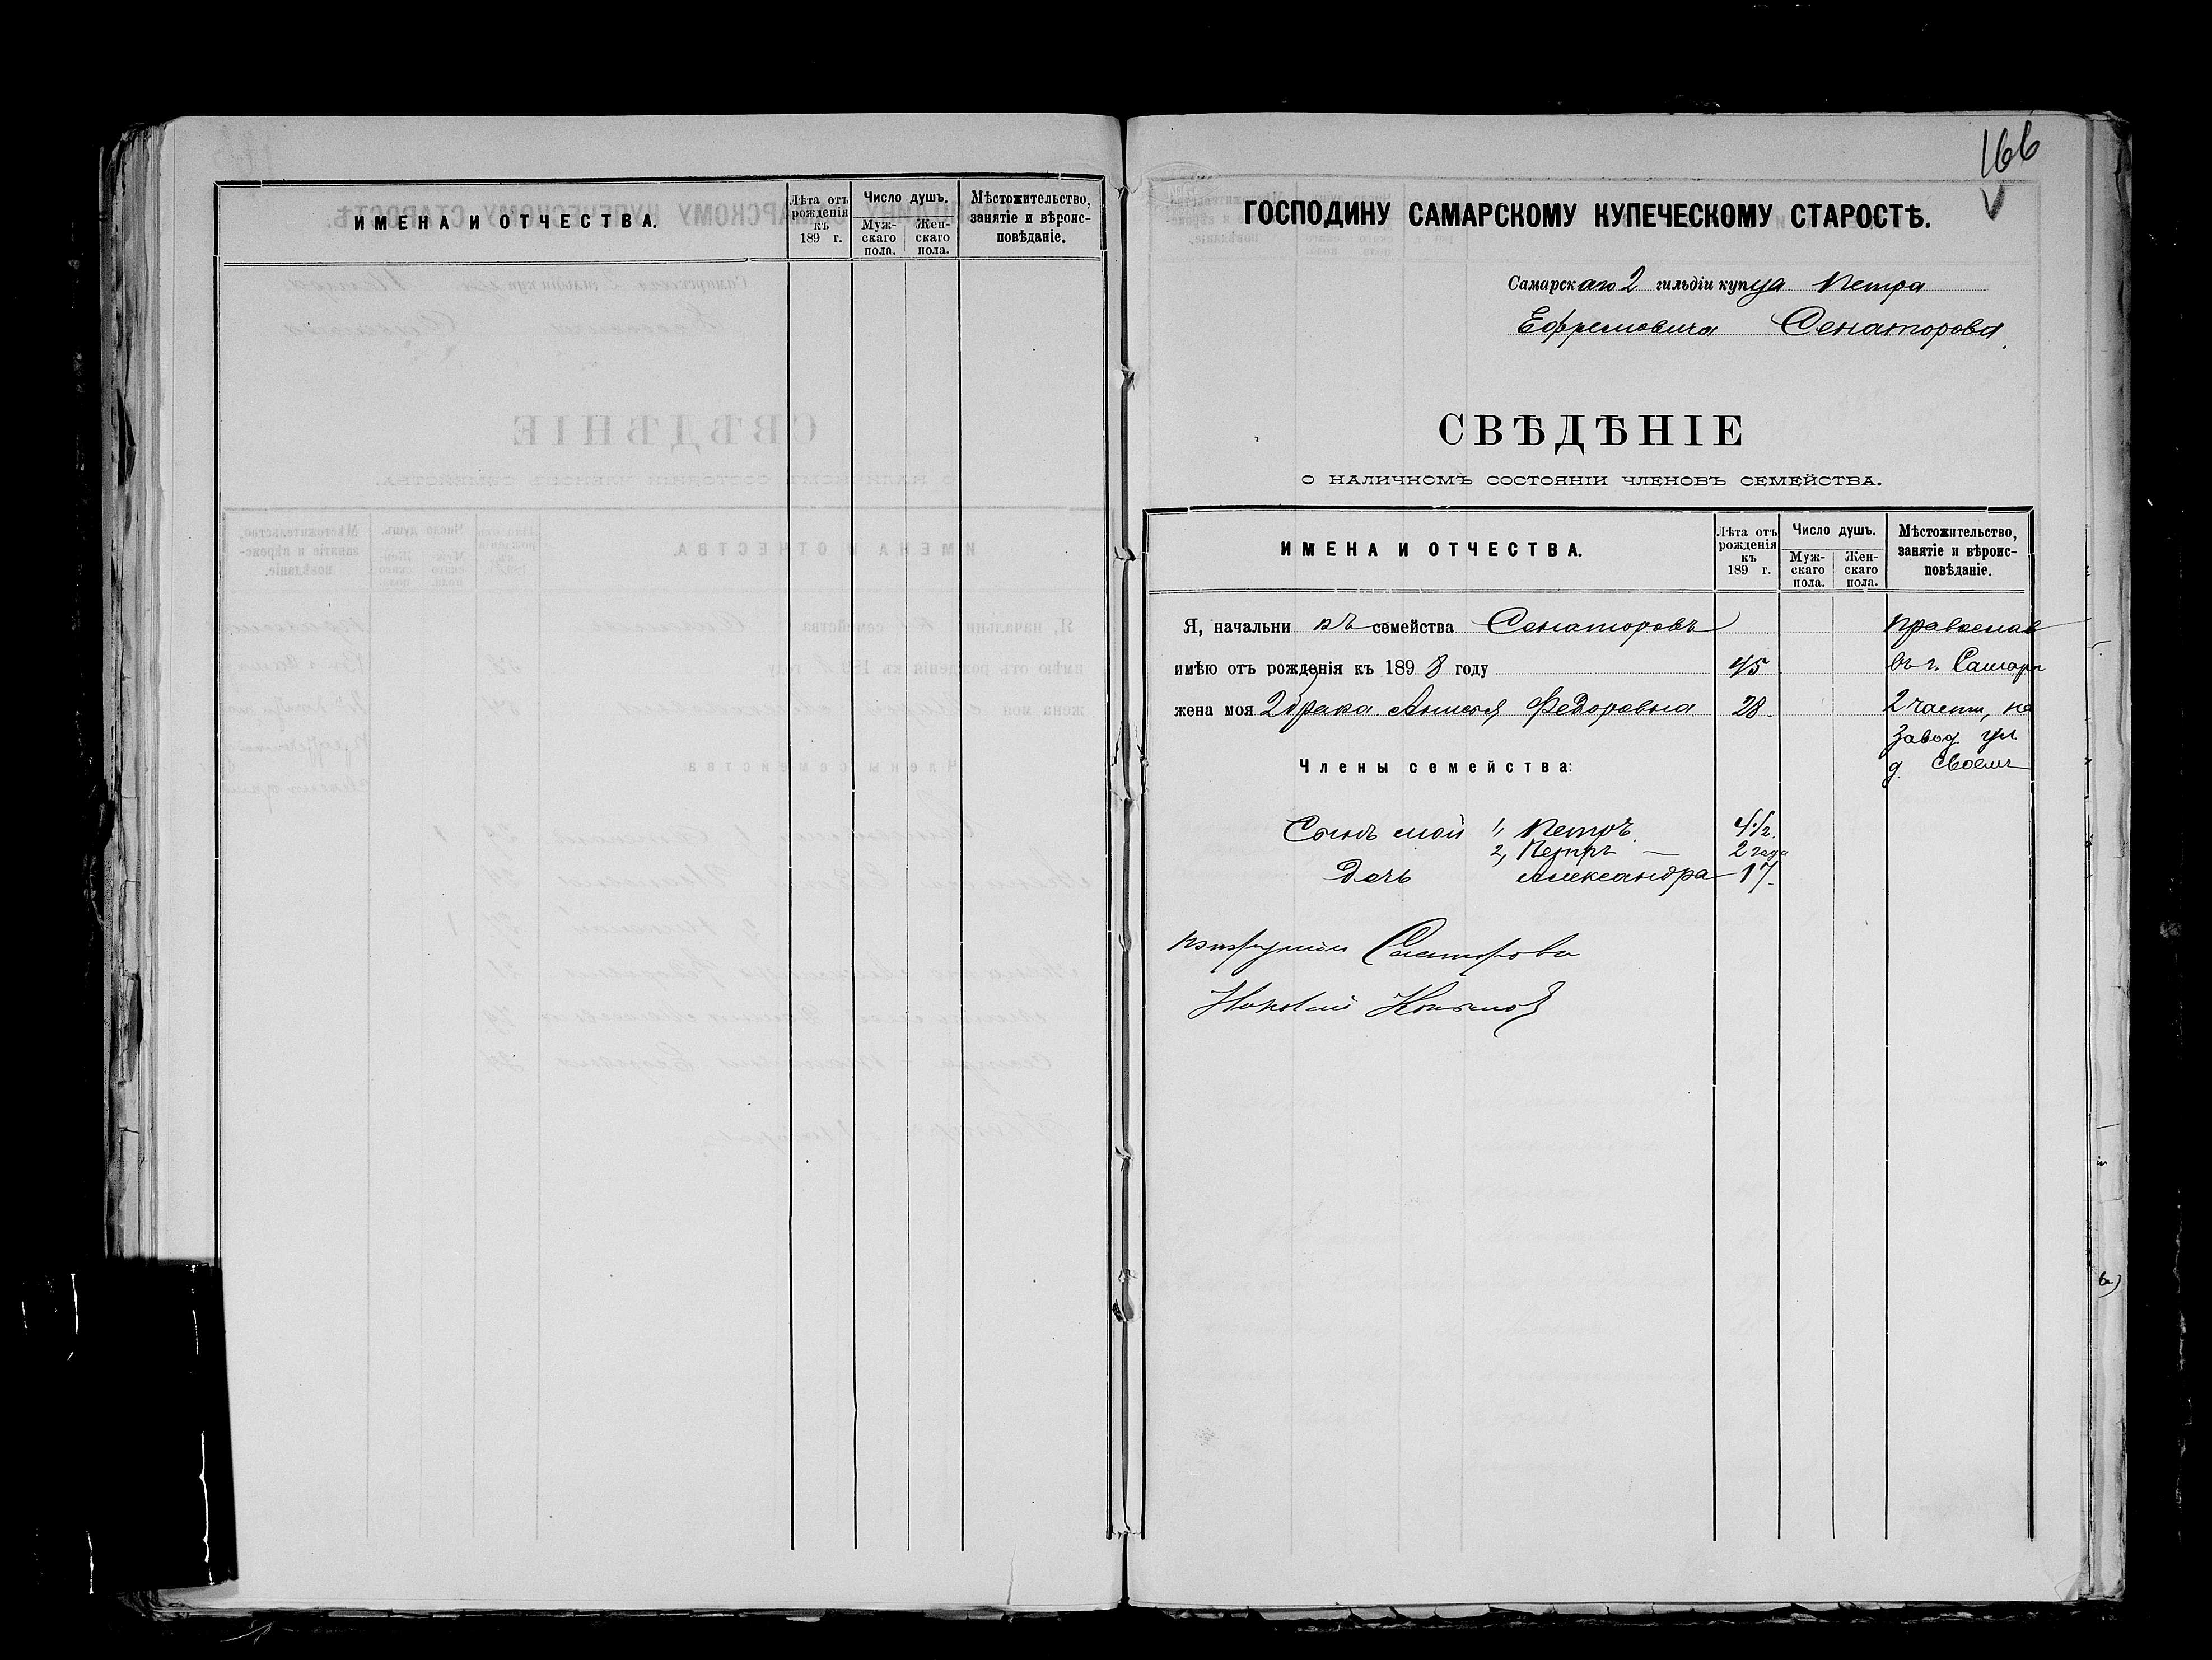 ИМЕНА И ОТЧЕСТВА.
Лѣта отъ рожденія къ 189 г.
Число душъ.
Мужскаго пола.
Женскаго пола.
Мѣстожительство, занятіе и вѣроисповѣданіе.
166
ГОСПОДИНУ САМАРСКОМУ КУПЕЧЕСКОМУ СТАРОСТѢ.
Самарскаго 2 гильдіи купца Петра
Ефремовича Сенаторова
СВѢДѢНІЕ
О НАЛИЧНОМЪ СОСТОЯНІИ ЧЛЕНОВЪ СЕМЕЙСТВА.
ИМЕНА И ОТЧЕСТВА.
Лѣта отъ рожденія къ 189 г.
Число душъ.
Мужскаго пола.
Женскаго пола.
Мѣстожительство, занятіе и вѣроисповѣданіе.
Я, начальникъ семейства Сенаторовъ православ
имѣю отъ рожденія къ 1898 году 45 въ г. Самарѣ
жена моя 2 брака Федоровна 28. 2 части, на
Завод ул.
Члены семейства: д. своемъ
Сынъ мой 1, Петръ 4 1/2.
2, Петръ — 2 года
Дочь Александра 17.
Сенаторова